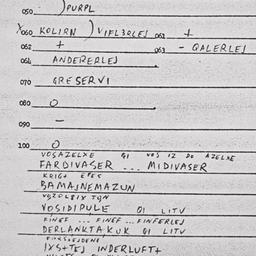 050 ) PURPL
060 KOLIRN ) VIFLZRLEJ 061 +
062 + 063 - QALERLEJ
064 ANDERERLEJ
070 GRESERVI
080 O
090 -
100 O
VOSAZELXE GI VOS IZ DO AZELXE
FARDIVASER ... MIDIVASER
KRIG+ EPES
BAMAJNEMAZUN
VOSIDIPULE GI LITV
FINEF ... FINEF ... FINFERLEJ
DERLANKTAKUK GI LITV
IXS+TEJ INDERLUFT+